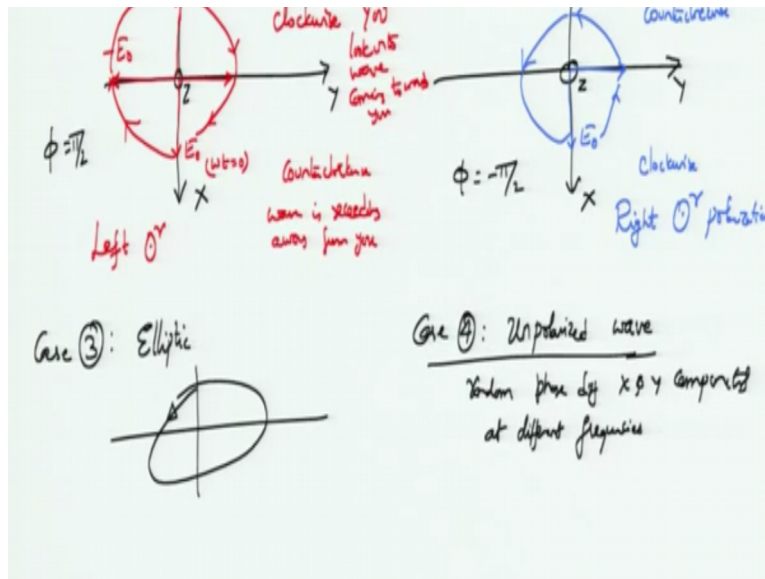 Clockwise you
look into
wave
coming toward
you
-E₀
Z
Y
E₀ (ωt=0)
X
ϕ = π/2
Counterclockwise
wave is receding
away from you
Left ʘʳ
Counterclockwise
Z
Y
E₀
X
ϕ = -π/2
Clockwise
Right ʘʳ polarization
Case ③: Elliptic
Case ④: Unpolarized wave
random phase bet X & Y components
at different frequencies